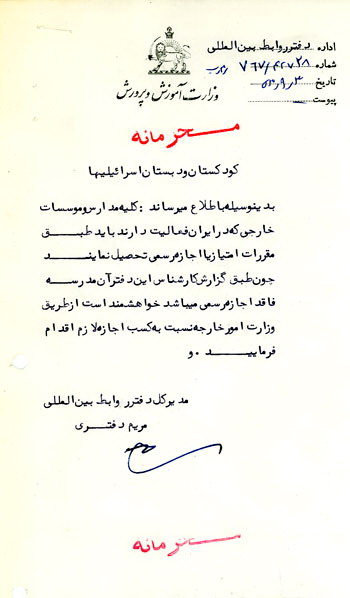 اداره دفتر روابط بین‌المللی
شماره
تاریخ
پیوست
وزارت آموزش و پرورش
محرمانه
کودکستان و دبستان اسرائیلیها
بدینوسیله باطلاع میرساند : کلیه مدارس و موسسات
خارجی که در ایران فعالیت دارند باید طبق
مقررات امتیاز یا اجازه رسمی تحصیل نمایند
چون طبق گزارش کارشناس این دفتر آن مدرسه
فاقد اجازه رسمی میباشد خواهشمند است از طریق
وزارت امور خارجه نسبت به کسب اجازه لازم اقدام
فرمایید . و
مدیر کل دفتر روابط بین‌المللی
مریم دفتری
محرمانه